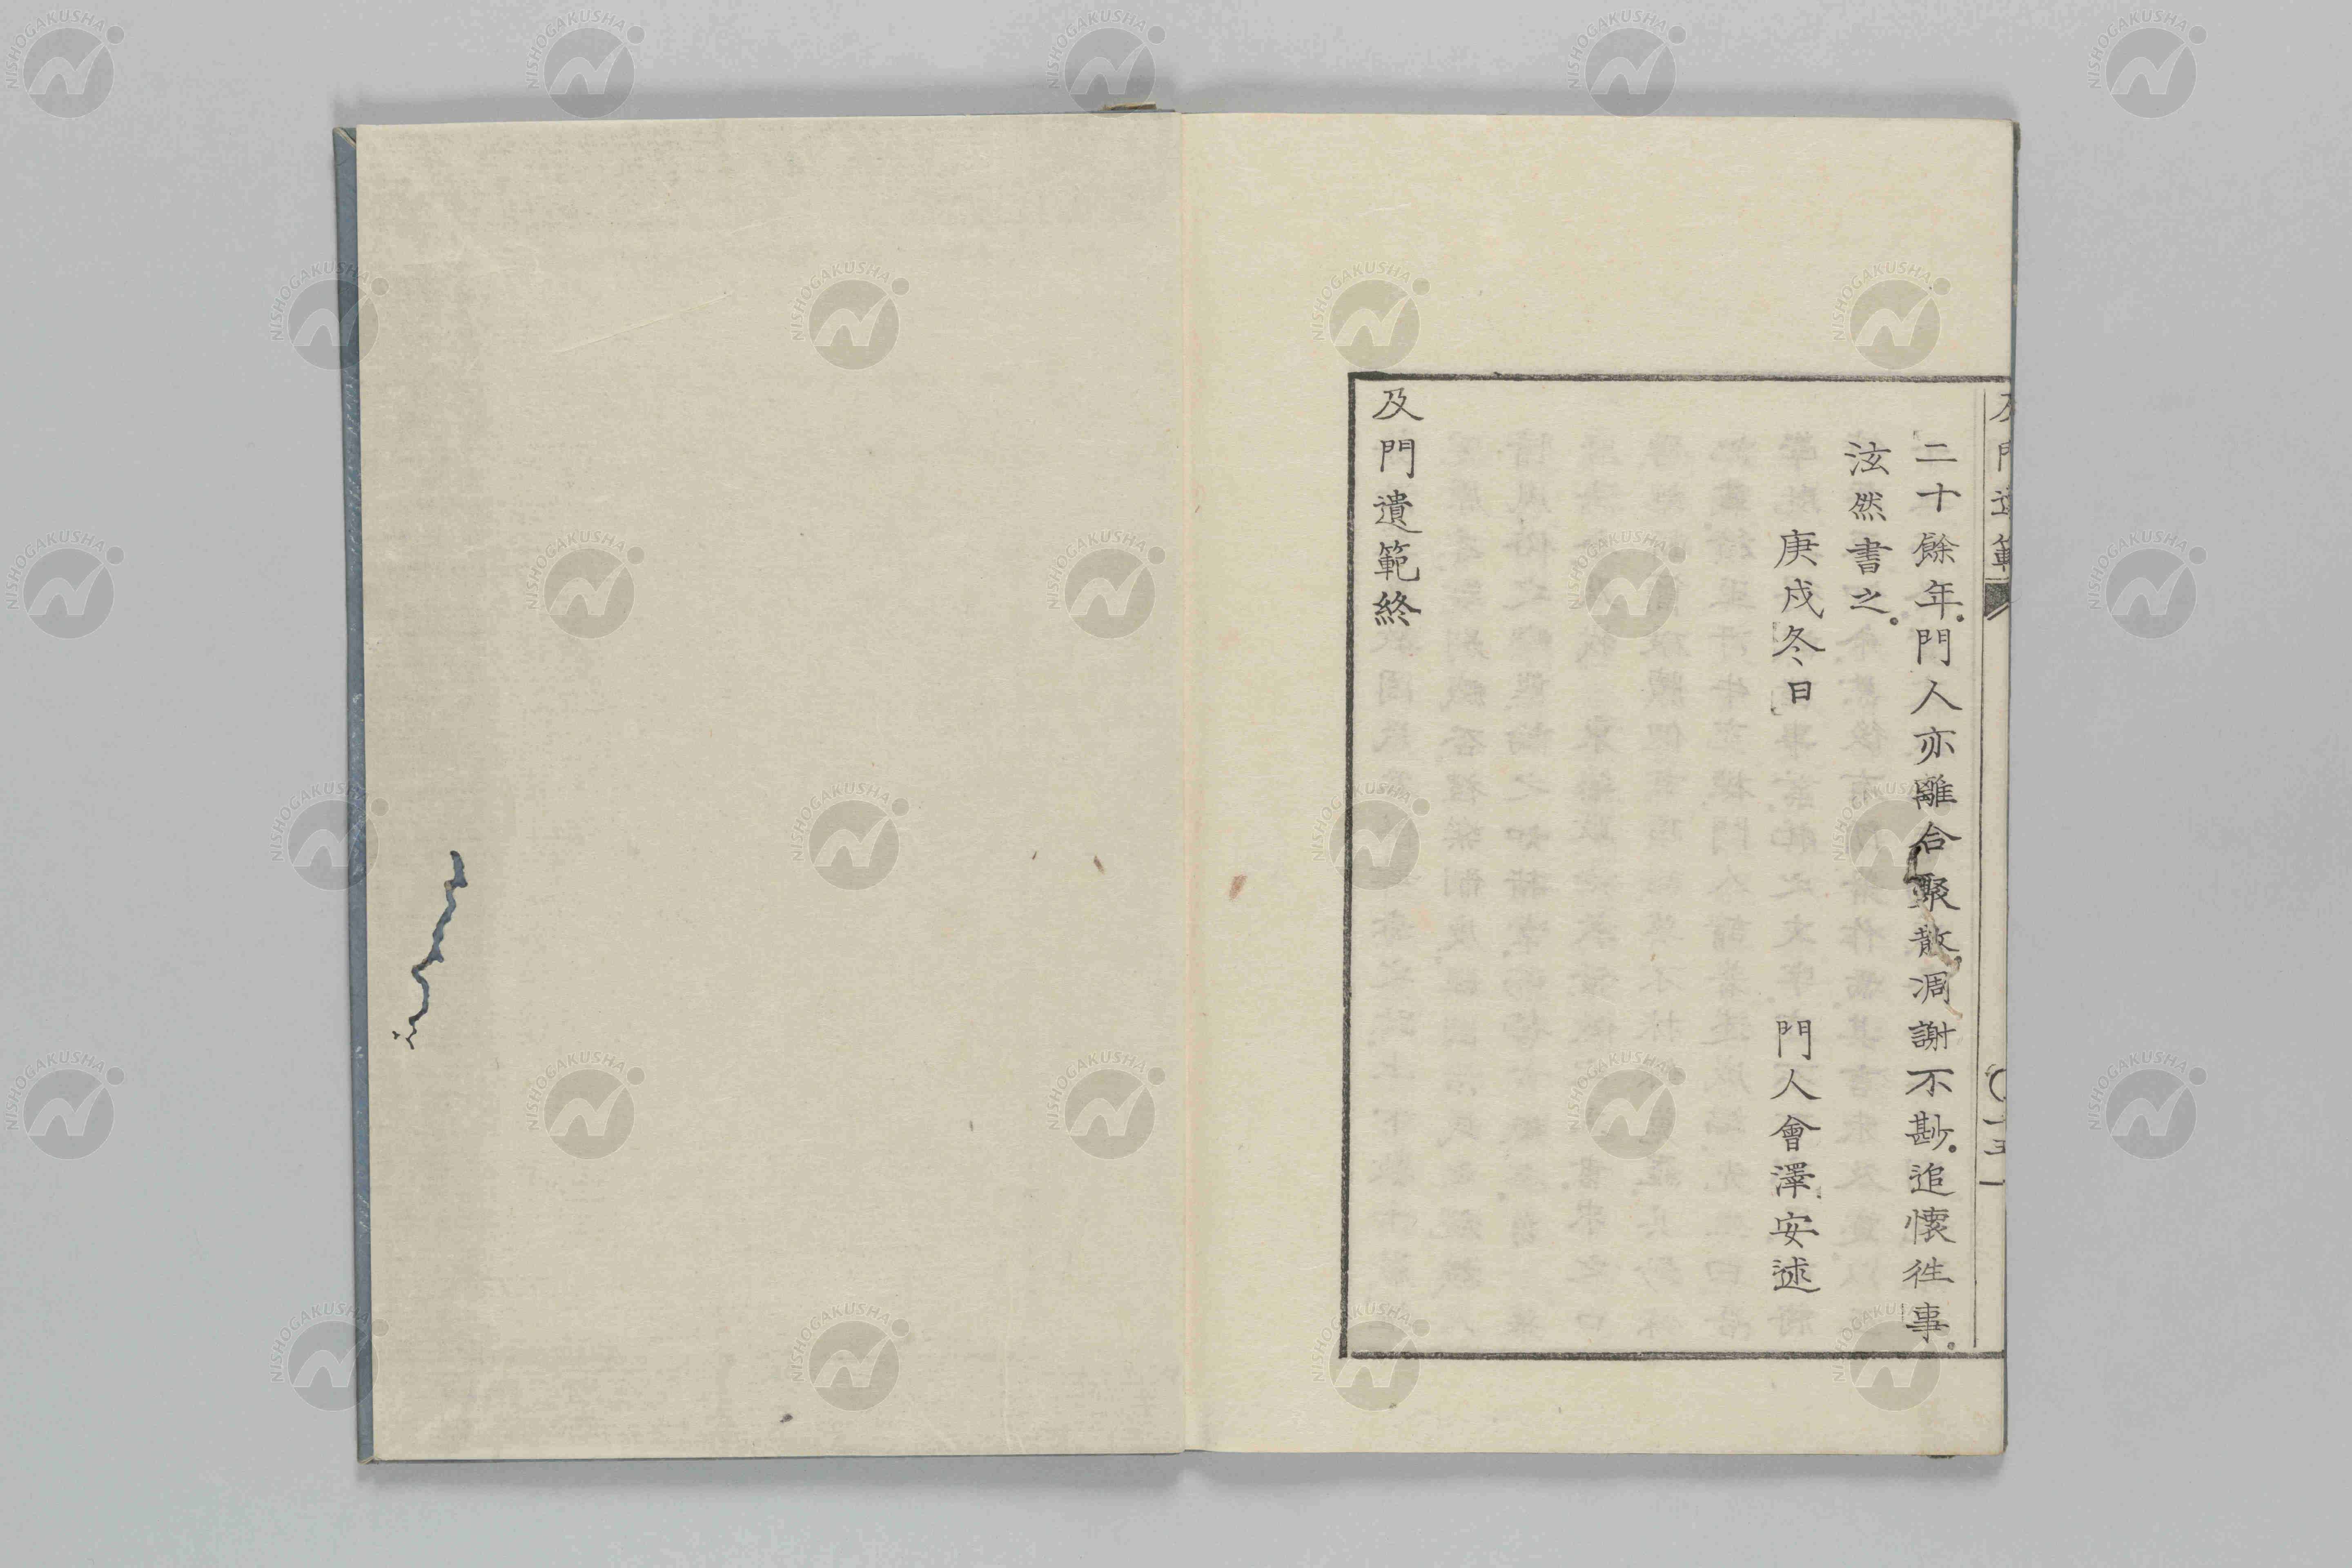 二十餘年。門人亦離合聚散。凋謝不尠。追懷徃事。
泫然書之。
庚戌冬日
門人會澤安述
及門遺範終
及門遺範
NISHOGAKUSHA